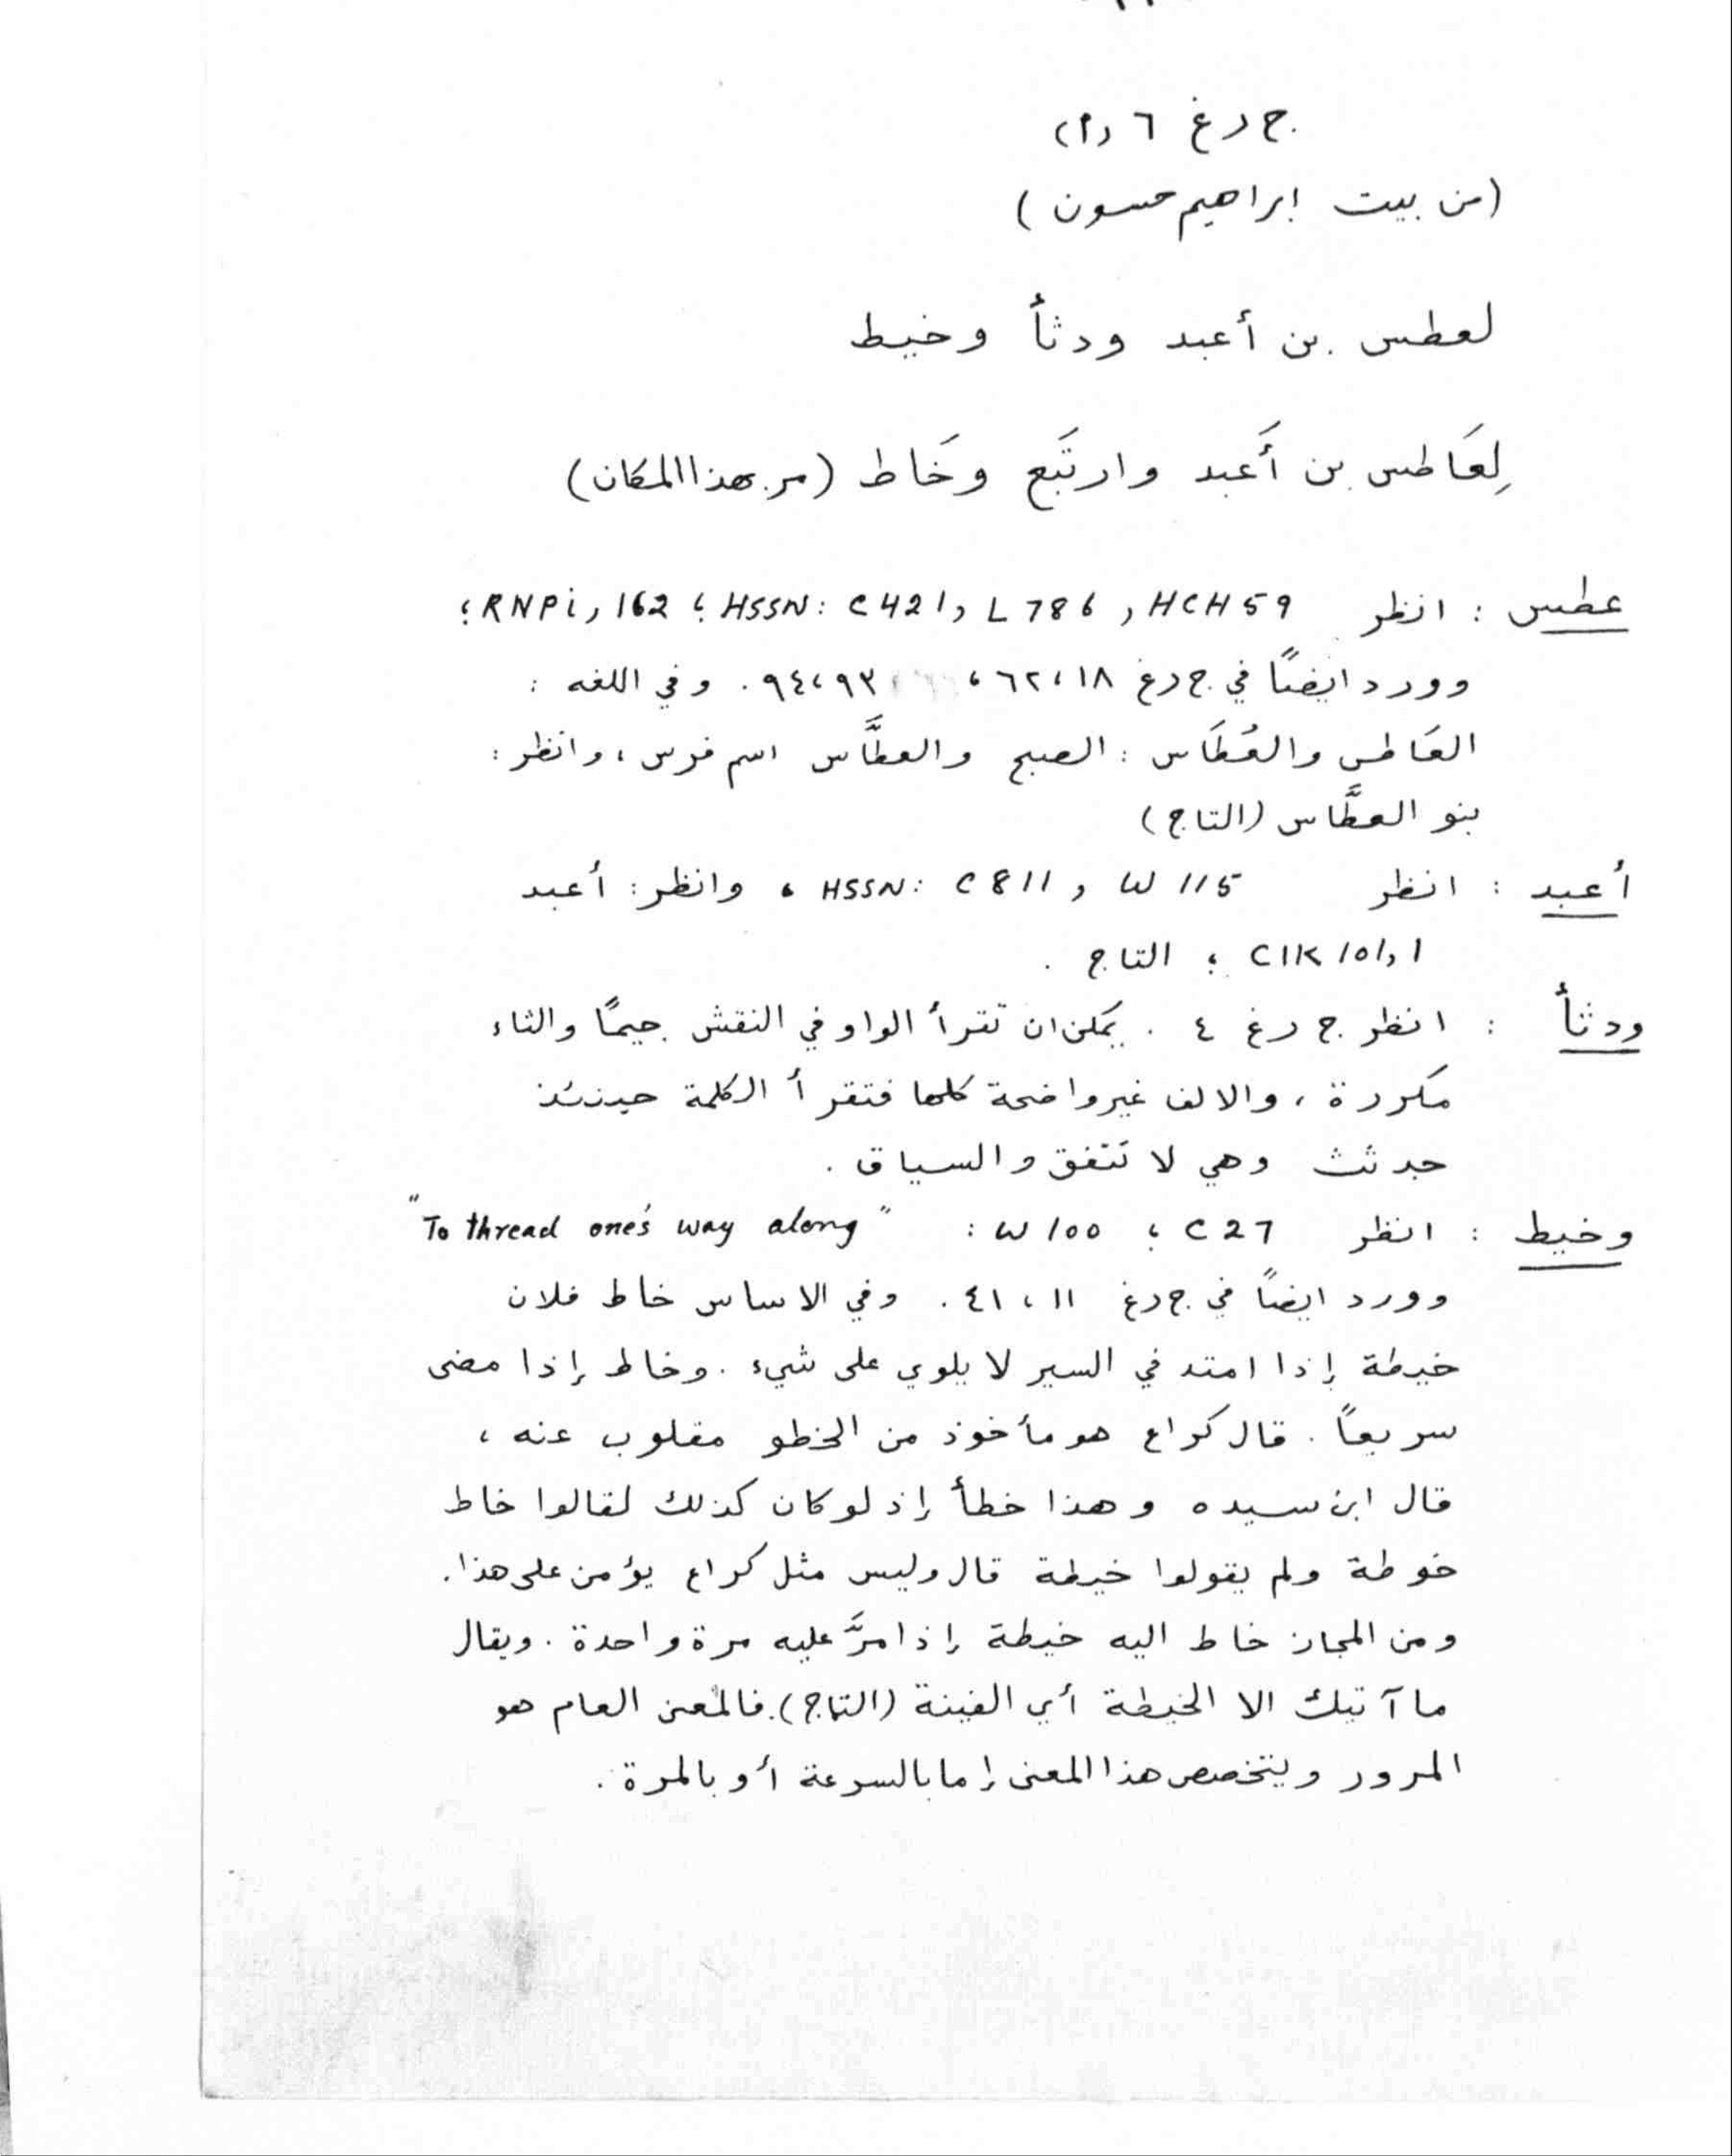 ج ر غ ٦ (٢)
(من بيت ابراهيم حسون)
لعطس بن أعبد ودثأ وخيط
لِعَاطس بن أَعبد وارتَبع وخَاط (مر بهذا المكان)
عطس : انظر HCH 59 , HSSN: C 421, L 786 ؛ RNPi, 162 ؛
وورد ايضًا في ج ر غ ١٨ ، ٦٢ ، ٩٣ ، ٩٤ . وفي اللغه :
العَاطس والعُطَاس : الصبح والعطَّاس اسم فرس ، وانظر :
بنو العطَّاس (التاج)
أعبد : انظر HSSN: C 811 , W 115 ، وانظر : أعبد
CIK 151,1 ؛ التاج .
ودثأ : انظر ج ر غ ٤ . يمكن ان تقرأ الواو في النقش جيمًا والثاء
مكررة ، والالف غير واضحة كلها فتقرأ الكلمة حينئذ
جدثث وهي لا تتفق والسياق .
وخيط : انظر C 27 ؛ W 100 : "To thread one's way along"
وورد ايضًا في ج ر غ ١١ ، ٤١ . وفي الاساس خاط فلان
خيطة إذا امتد في السير لا يلوي على شيء . وخاط إذا مضى
سريعًا . قال كراع هو مأخوذ من الخطو مقلوب عنه ،
قال ابن سيده وهذا خطأ إذ لو كان كذلك لقالوا خاط
خوطة ولم يقولوا خيطة قال وليس مثل كراع يؤمن على هذا .
ومن المجاز خاط اليه خيطة إذا مرَّ عليه مرة واحدة . ويقال
ما آتيك الا الخيطة أي الفينة (التاج). فالمعنى العام هو
المرور ويتخصص هذا المعنى إما بالسرعة أو بالمرة .